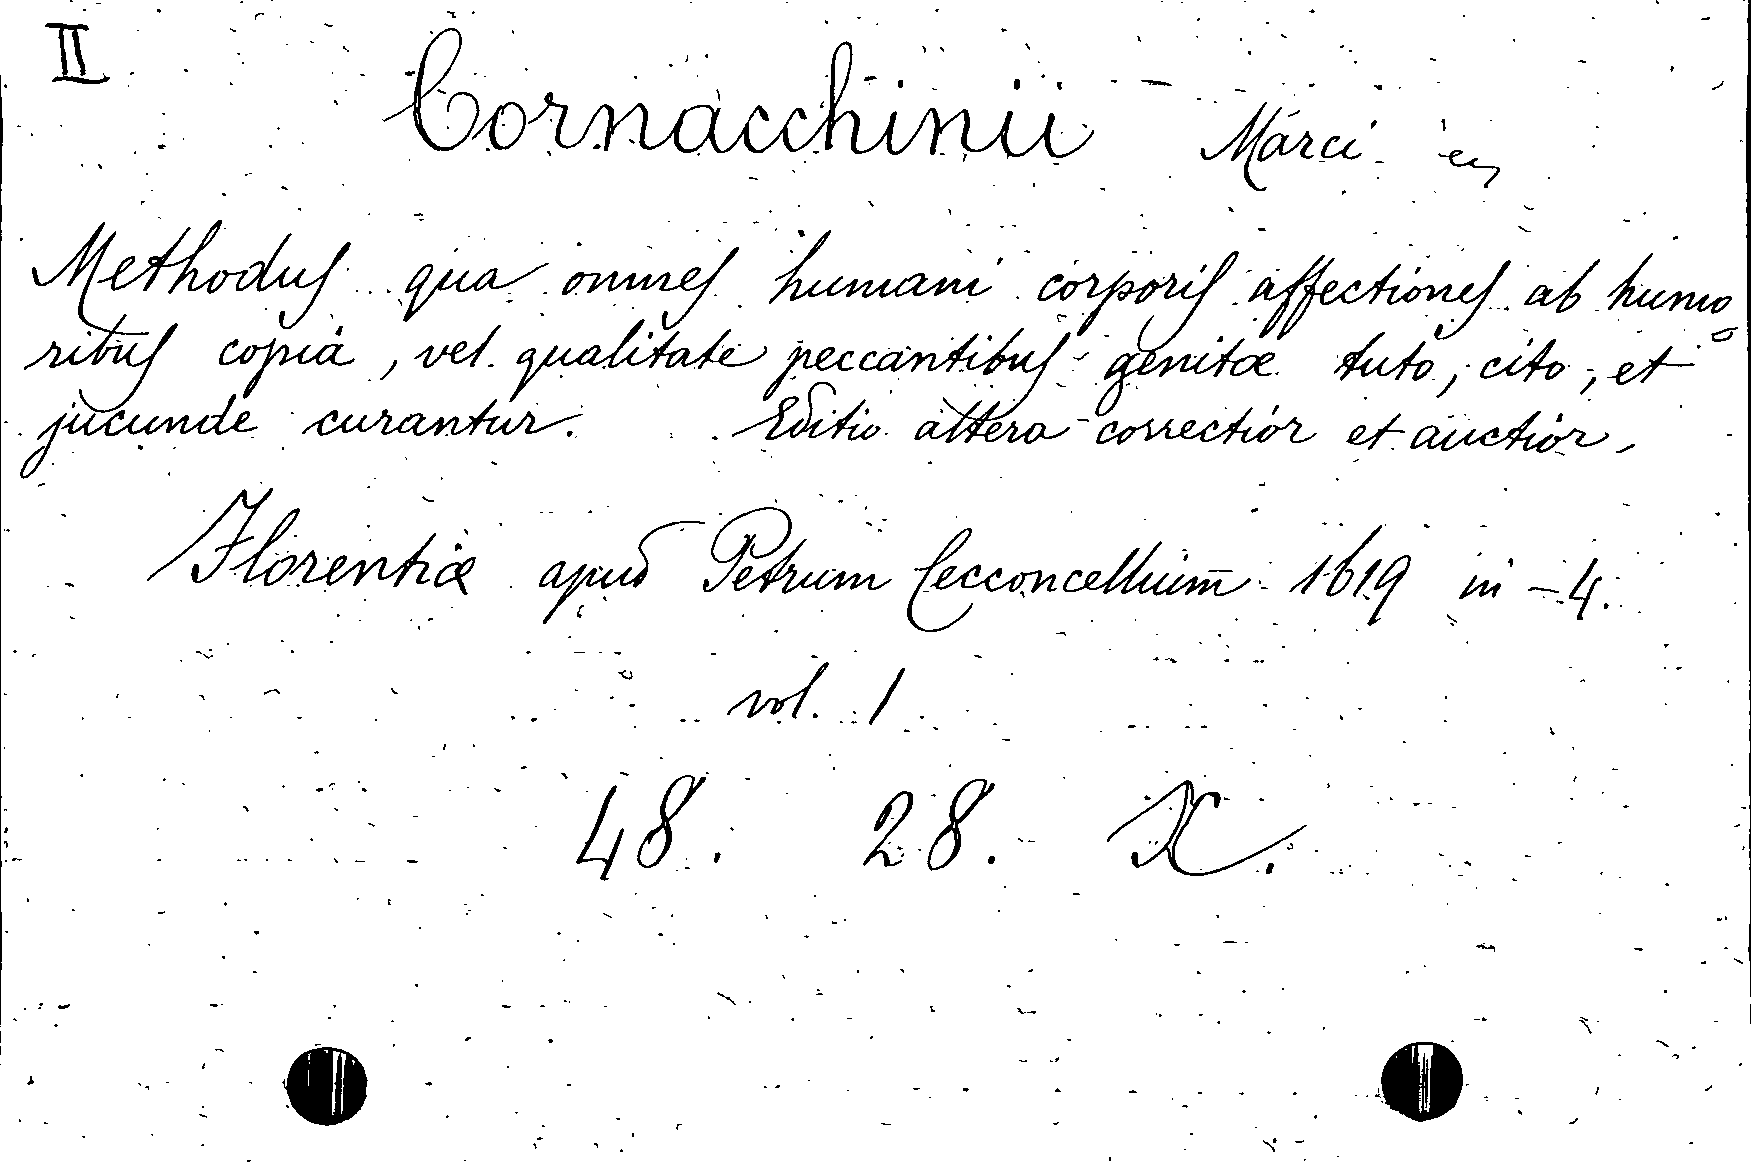 II
Cornacchinii Marci
Methodus qua omnes humani corporis affectiones ab humo
ribus copia, vel qualitate peccantibus genitæ tuto, cito, et
jucunde curantur. Editio altera correctior et auctior,
Florentiæ apud Petrum Cecconcellium 1619 in-4.
vol. 1
48. 28. X.